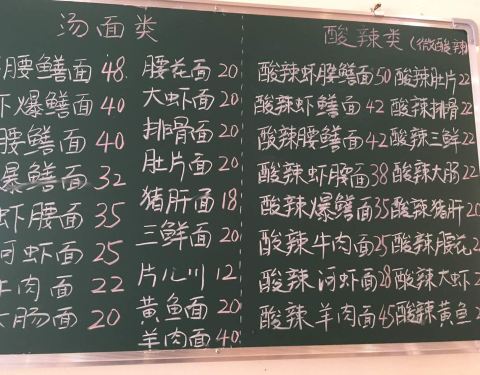 汤面类
腰鳝面 48
虾爆鳝面 40
腰鳝面 40
爆鳝面 32
虾腰面 35
河虾面 25
牛肉面 22
大肠面 20
腰花面 20
大虾面 20
排骨面 20
肚片面 20
猪肝面 18
三鲜面 20
片儿川 12
黄鱼面 20
羊肉面 40
酸辣类(微酸辣
酸辣虾腰鳝面 50 酸辣肚片 22
酸辣虾鳝面 42 酸辣排骨 22
酸辣腰鳝面 42 酸辣三鲜 22
酸辣虾腰面 38 酸辣大肠 22
酸辣爆鳝面 35 酸辣猪肝 20
酸辣牛肉面 25 酸辣腰花 2
酸辣河虾面 28 酸辣大虾 2
酸辣羊肉面 45 酸辣黄鱼 2